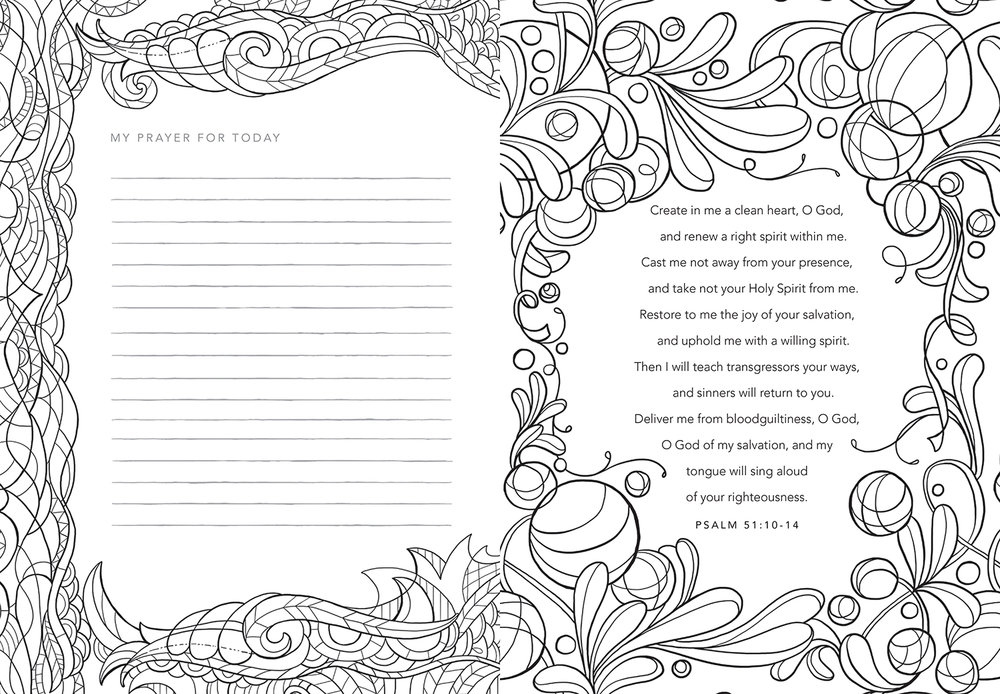 MY PRAYER FOR TODAY
Create in me a clean heart, O God,
and renew a right spirit within me.
Cast me not away from your presence,
and take not your Holy Spirit from me.
Restore to me the joy of your salvation,
and uphold me with a willing spirit.
Then I will teach transgressors your ways,
and sinners will return to you.
Deliver me from bloodguiltiness, O God,
O God of my salvation, and my
tongue will sing aloud
of your righteousness.
PSALM 51:10-14